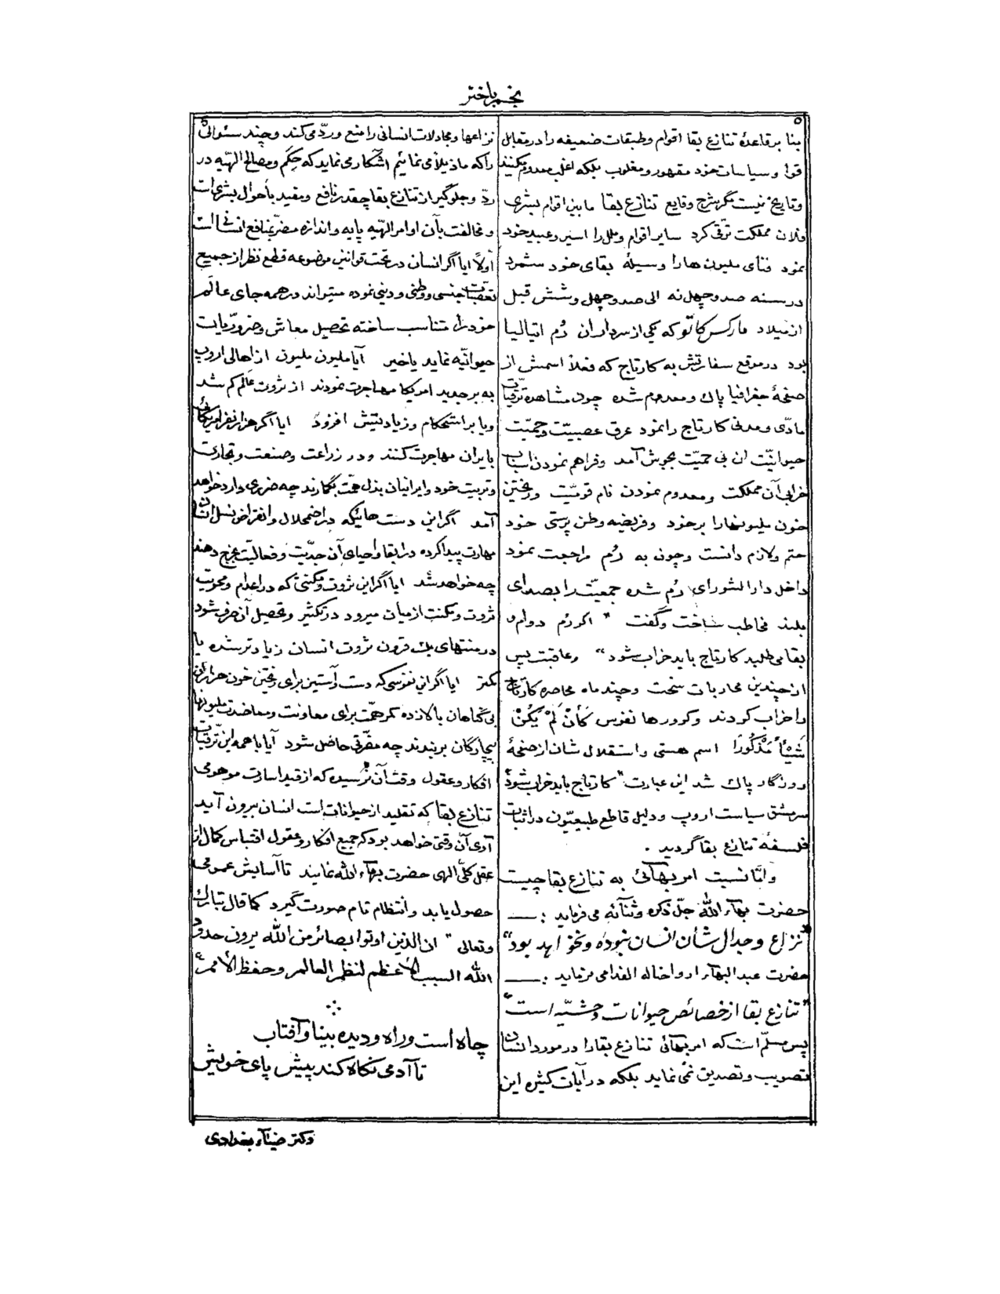 نجم باختر
۵
۵
بنا بر قاعدهٔ تنازع بقا اقوام و طبقات ضعیفه را در مقابل
قوا و سیاسات خود مقهور و مغلوب بلکه اغلب معدوم میکنند
و تاریخ نیست مگر شرح وقایع تنازع بقا مابین اقوام بشری
فلان مملکت ترقی کرد سایر اقوام و ملل را اسیر و عبید خود
نمود فنای ملیون ها را وسیلهٔ بقای خود شمرد
در سنه صد و چهل نه الی صد و چهل و شش قبل
از میلاد مارکس کاتو که یکی از سرداران رُم ایتالیا
بود در موقع سفارتش به کارتاج که فعلاً اسمش از
صفحهٔ جغرافیا پاك و معدوم شده چون مشاهده ترقیات
مادّی و مدنی کارتاج را نمود عرق عصبیّت و حمیّت
حیوانیّت ان بی حمیّت بجوش آمد و فراهم نمودن اسباب
خرابی آن مملکت و معدوم نمودن نام قومیّت و ریختن
خون ملیونها را بر خود وفریضه وطن پرستی خود
حتم و لازم دانست و چون به رُم مراجعت نمود
داخل دار الشورای رُم شده جمعیّت را بصدای
بلند مخاطب ساخت و گفت " اگر رُم دوام و
بقا می طلبد کارتاج باید خراب شود" و عاقبت پس
از چندین محاربات سخت و چند ماه محاصره کارتاج
را خراب کردند و کرورها نفوس كَأَنْ لَمْ يَكُنْ
شَيْئاً مَذْكُوراً اسم هستی و استقلال شان از صفحهٔ
روزگار پاك شد این عبارت "کارتاج باید خراب شود"
سرمشق سیاست اروپ و دلیل قاطع طبیعیّون در اثبات
فلسفهٔ تنازع بقا گردید .
و امّا نسبت امر بهائی به تنازع بقا چیست
حضرت بهاء الله جلّ ذکره و ثنائه می فرماید :ـــ
"نزاع و جدال شأن انسان نبوده و نخواهد بود"
حضرت عبد البهاء ارواحنا له الفدا می فرماید :ـــ
"تنازع بقا از خصائص حیوانات وحشیّه است"
پس مسلّم است که امر بهائی تنازع بقا را در مورد انسان
تصویب و تصدیق نمی نماید بلکه در آیات کثیره این
نزاعها و مجادلات انسانی را منع و ردّ می کند و چند سئوالی
را که ما ذیلاً می نمائیم اشکار می نماید که حِکَم و مصالح الهیّه در
ردّ و جلوگیر از تنازع بقا چقدر نافع و مفید باحوال بشری است
و مخالفت بآن اوامر الهیّه پایه و اندازه مضرّ بمنافع انسانی است
اولاً ایا اگر انسان در تحت قوانین موضوعه قطع نظر از جمیع
تعصّبات جنسی و وطنی و دینی نموده میتواند در همه جای عالم
خود را متناسب ساخته تحصیل معاش و ضروریات
حیوانیّه نماید یا خیر آیا ملیون ملیون از اهالی اروپ
به بر جدید امریکا مهاجرت نمودند از ثروت عالم کم شد
و یا بر استحکام و زیادتیش افزود ایا اگر هزار نفر امریکائی
بایران مهاجرت کنند و در زراعت و صنعت و تجارت
و تربیت خود و ایرانیان بذل همّت بگمارند چه ضرری دارد خواهد
آمد اگر این دست هائیکه در اضمحلال و انقراض نسل انسان
مهارت پیدا کرده در ابقا و احیای آن جدّیت و فعالیّت بخرج دهند
چه خواهد شد ایا اگر این ثروت و مکنتی که در اعدام و محویت
ثروت و مکنت از میان میرود در تکثیر و تحصیل آن صرف شود
در منتهای یك قرون ثروت انسان زیادتر شده یا
کمتر ایا اگر این نفوسی که دست و آستین برای ریختن خون هزاران
بی گناهان بالا زده کمر همّت برای معاونت و معاضدت ملیونها
بیچارگان بربندند چه مضرّتی حاصل شود آیا با همه این ترقیات
افکار و عقول وقت آن نرسیده که از قید اسارت موهومی
تنازع بقا که تقلید از حیوانات است انسان بیرون آید
آری آن وقتی خواهد بود که جمیع افکار و عقول اقتباس کمال از
عقل کلّی الهی حضرت بهاء الله نمایند تا آسایش عمومی
حصول یابد و انتظام تام صورت گیرد كما قال تبارك
وتعالى " ان الذين اوتوا بصائر من الله يرون حدود
الله السبب الأعظم لنظم العالم و حفظ الأمم"
چاه است و راه و دیده بینا و آفتاب
تا آدمی نگاه کند پیش پای خویش
دکتر ضیاء بغدادی